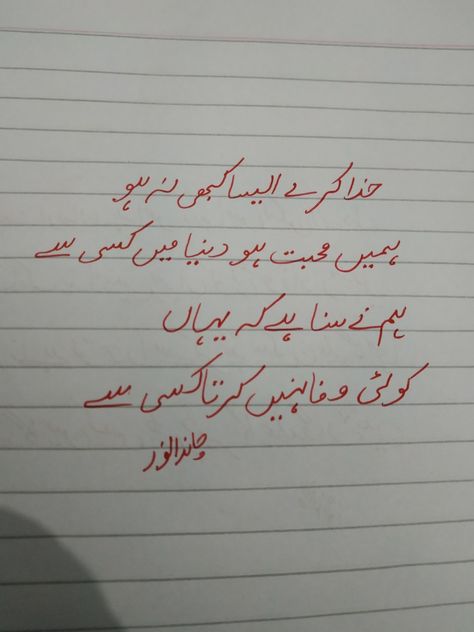 خدا کرے ایسا کبھی نہ ہو
ہمیں محبت ہو دنیا میں کسی سے
ہم نے سنا ہے کہ یہاں
کوئی وفا نہیں کرتا کسی سے